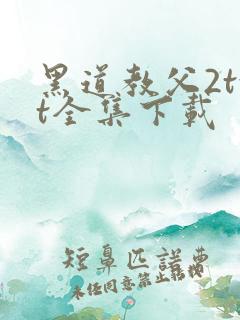 黑道教父2t
t全集下载
短鼻匹诺曹
未经同意禁止转载